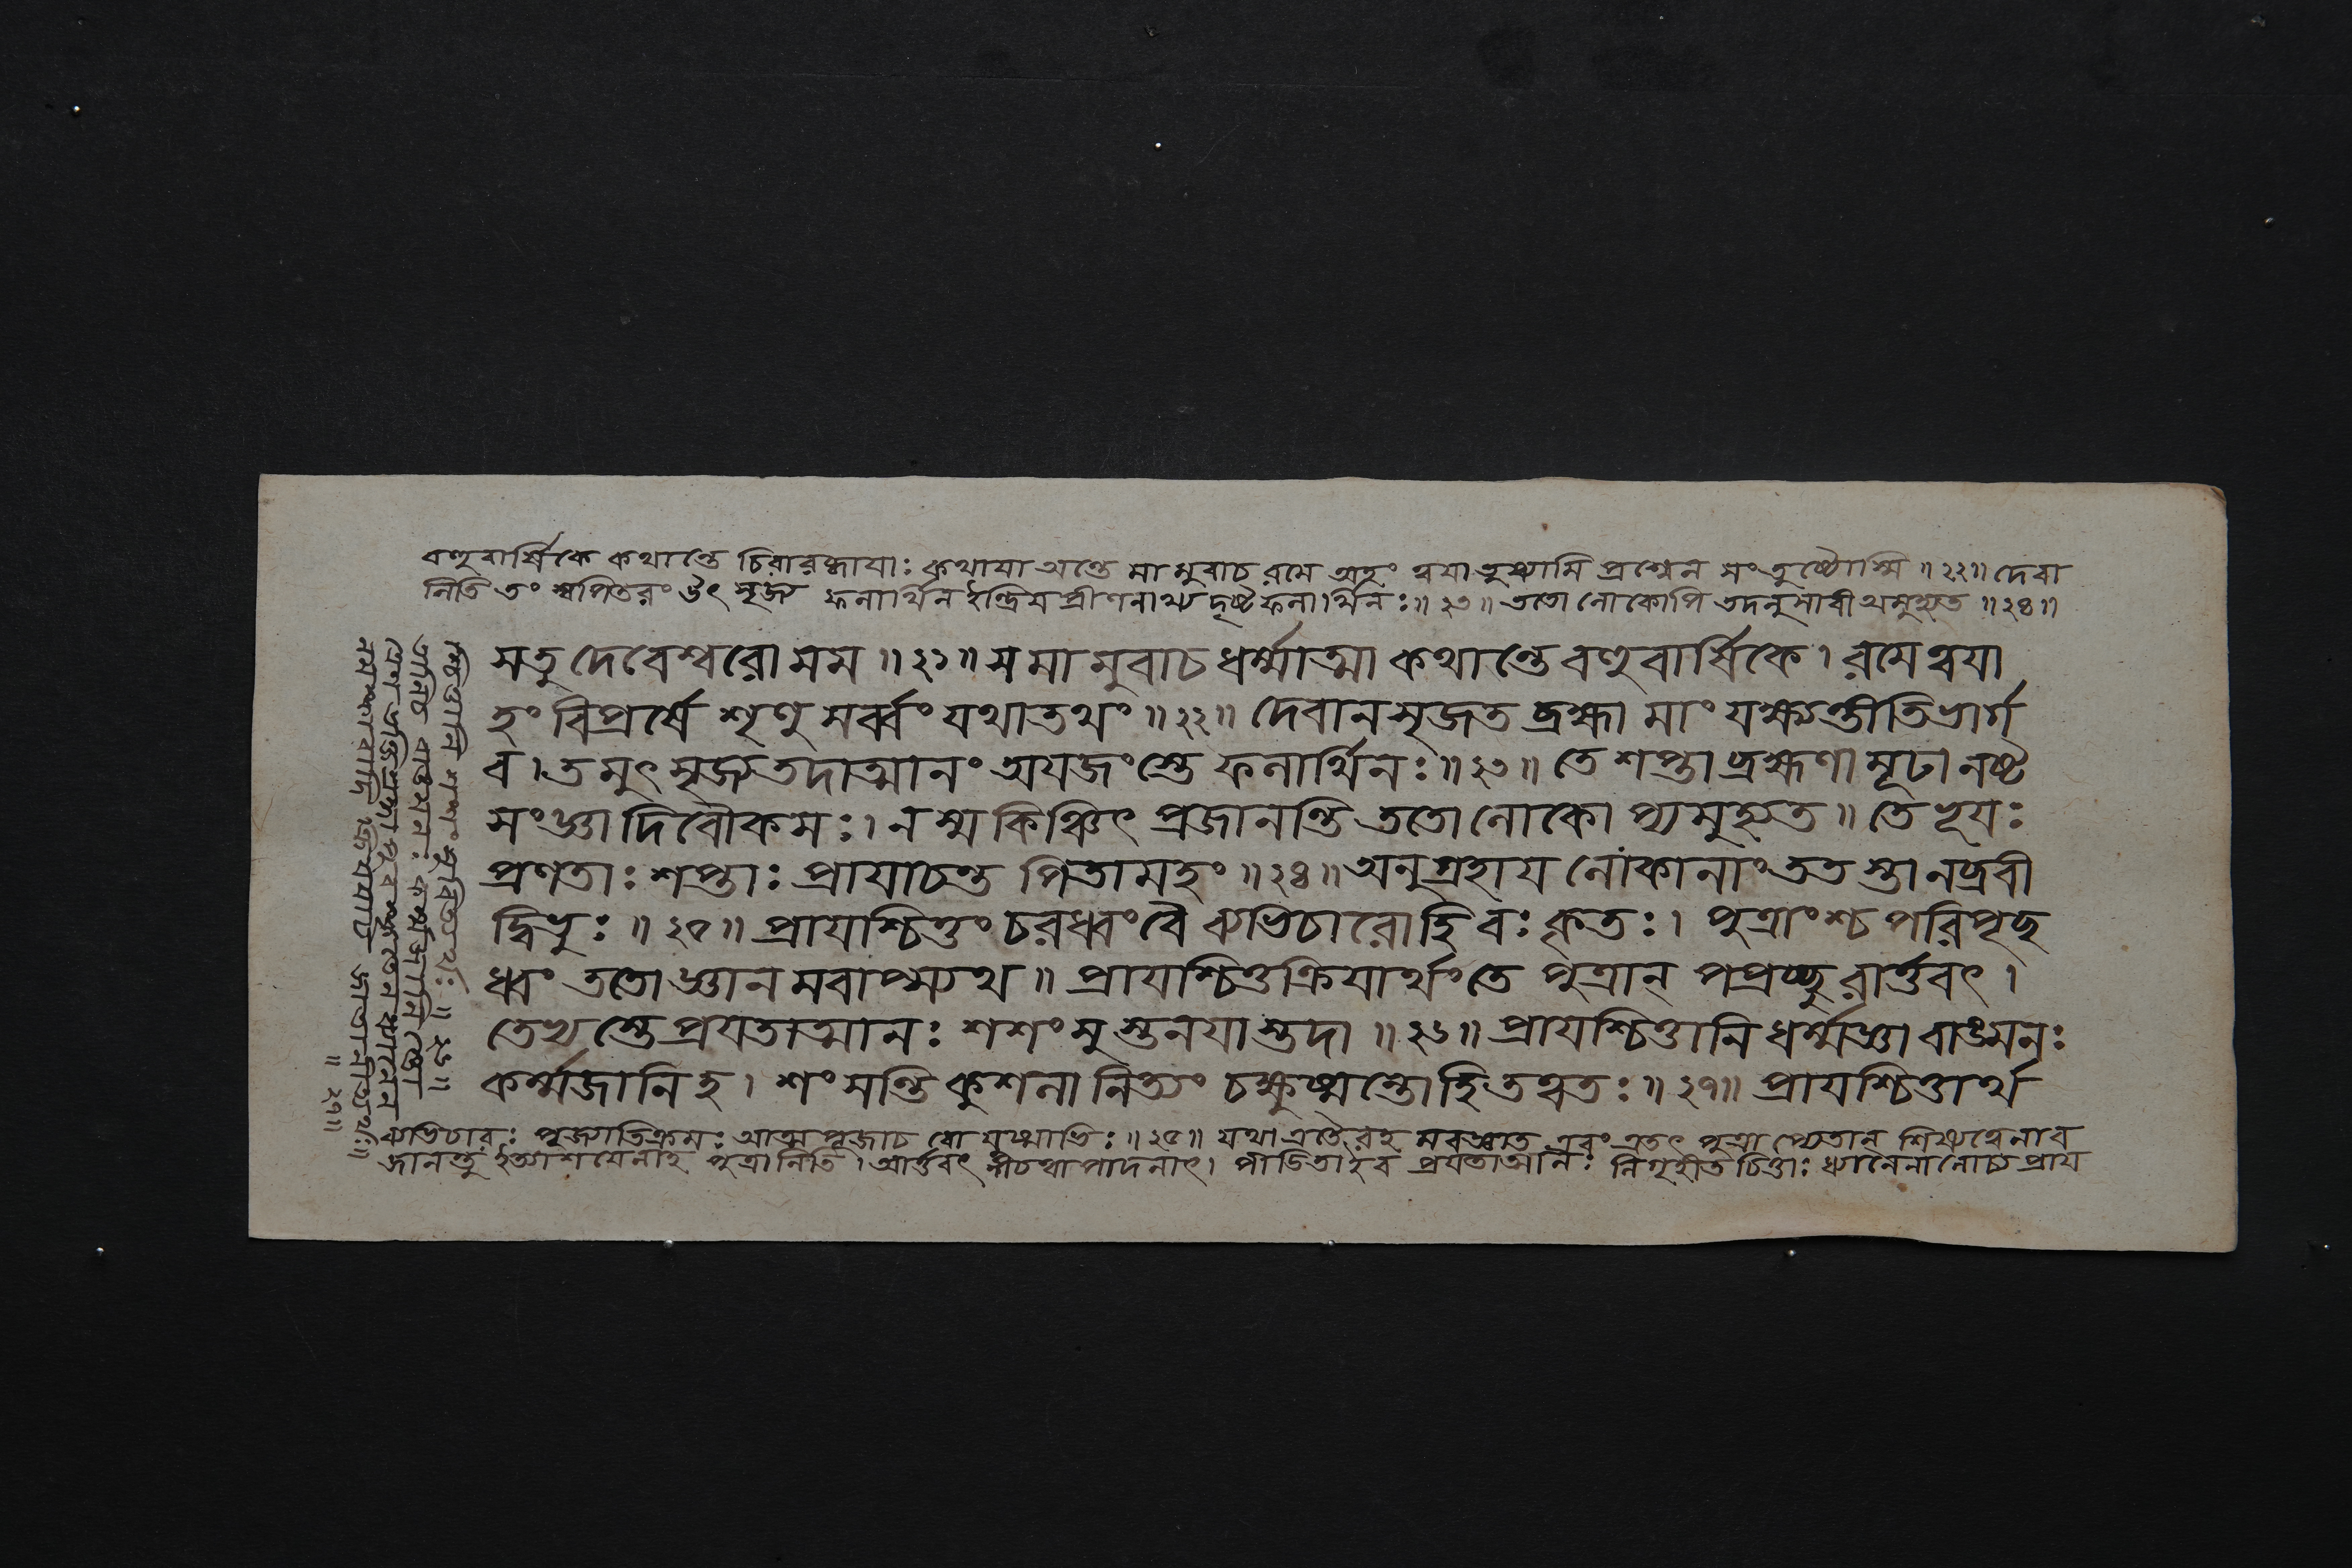 বহুবার্ষিকে কথান্তে চিরারব্ধাযাঃ কথাযা অন্তে মামুবাচ রমে অহং ত্বযা তুষ্যামি প্রশ্নেন সংতুষ্টোস্মি ॥২২॥ দেবা
নিতি তং স্বপিতরং উৎসৃজ্য ফলার্থিন ইন্দ্রিযপ্রীণনাখ্য দৃষ্টফলার্থিনঃ॥২৩॥ ততো লোকোপি তদনুসারী অমুহ্যত ॥২৪॥
সতু দেবেশ্বরো মম ॥২১॥ স মামুবাচ ধর্ম্মাত্মা কথান্তে বহুবার্ষিকে। রমে ত্বযা
হং বিপ্রর্ষে শৃণু সর্ব্বং যথাতথং ॥২২॥ দেবানসৃজত ব্রহ্মা মাং যক্ষ্যন্তীতি ভার্গ
ব। তমুৎসৃজ্য তদাত্মানং অযজংস্তে ফলার্থিনঃ॥২৩॥ তে শপ্তা ব্রহ্মণা মূঢা নষ্ট
সংজ্ঞা দিবৌকসঃ। ন স্ম কিঞ্চিৎ প্রজানন্তি ততো লোকোপ্যমুহ্যত॥ তে ভূযঃ
প্রণতাঃ শপ্তাঃ প্রাযাচন্ত পিতামহং ॥২৪॥ অনুগ্রহায লোকানাং ততস্তানব্রবী
দ্বিভুঃ ॥২৫॥ প্রাযশ্চিত্তং চরধ্বং বৈ ব্যভিচারোহি বঃ কৃতঃ। পুত্রাংশ্চ পরিপৃছ
ধ্বং ততো জ্ঞানমবাপ্স্যথ॥ প্রাযশ্চিত্তক্রিযার্থং তে পুত্রান্ পপ্রচ্ছুরার্ত্তবৎ।
তেভ্যস্তে প্রযতাত্মানঃ শশংসুস্তনযাস্তদা ॥২৬॥ প্রাযশ্চিত্তানি ধর্ম্মজ্ঞা বাঙ্মনঃ
কর্ম্মজানি হ। শংসন্তি কুশলা নিত্যং চক্ষুষ্মন্তোহি তত্বতঃ॥২৭॥ প্রাযশ্চিত্তার্থ
ব্যভিচারঃ পূজ্যাতিক্রমঃ আত্মপূজাচ যুষ্মাভিঃ॥২৫॥ যথা এবং এতৎ পুত্রা শিষ্যত্বেনাব
জানন্তু ইত্যাশযেনাহ পুত্রানিতি। আর্ত্তবৎ পীডিতা ইব প্রযতাত্মানঃ নিগৃহীতচিত্তাঃ ধ্যানেনালোচ্য প্রায
শ্চিত্তানি শশংসুরিত্যর্থঃ॥২৬॥
তানিচ বাঙমনঃ কর্ম্মজানি স্তো
ত্রেণ ভক্তিশ্রদ্ধা ধ্যানেন
নমস্কারাদি ক্রিযযাচ জাতানীত্যর্থঃ॥
॥২৭॥